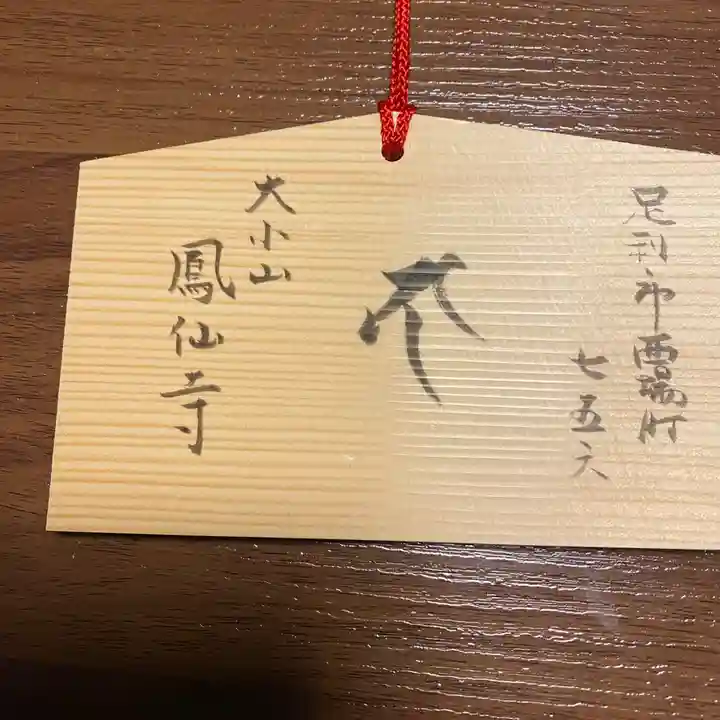 足利市西場町
七五六
大小山
鳳仙寺